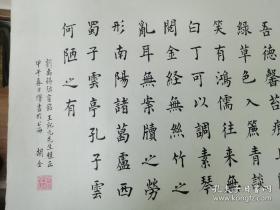 吾德馨苔痕上階
綠草色入簾青談
笑有鴻儒往來無
白丁可以調素琴
閱金經無絲竹之
亂耳無案牘之勞
形南陽諸葛廬西
蜀子雲亭孔子雲
何陋之有
劉禹錫陋室銘 先生雅正
甲午春日 書於上海 胡全